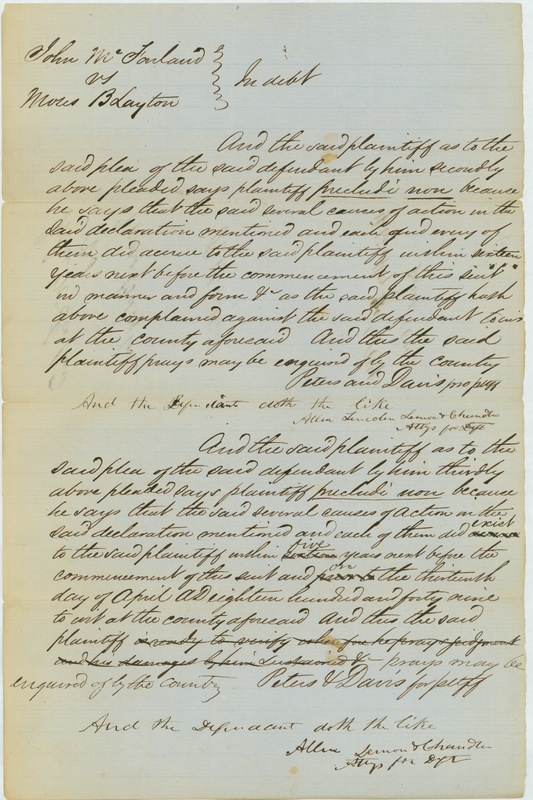 John McFarland
vs
Moses B Layton
In debt
And the said plaintiff as to the
said plea of the said defendant by him secondly
above pleaded says plaintiff precludi non because
he says that the said several causes of action in the
said declaration mentioned and each and every of
them did accrue to the said plaintiff within sixteen
years next before the commencement of this suit
in manner and form &c as the said plaintiff hath
above complained against the said defendant to wit
at the county aforesaid And this the said
plaintiff prays may be enquired of by the country
Peters and Davis pro plff
And the Defendant doth the like
Allen Lincoln Lemon & Chandler
Attys for Dft
And the said plaintiff as to the
said plea of the said defendant by him thirdly
above pleaded says plaintiff precludi non because
he says that the said several causes of action in the
said declaration mentioned and each of them did exist
to the said plaintiff within five years next before the
commencement of this suit and on the thirteenth
day of April AD eighteen hundred and forty nine
to wit at the county aforesaid And this the said
plaintiff is ready to verify wherefore he prays judgment
and his damages by him sustained &c prays may be
enquired of by the country Peters & Davis for pltff
And the Defendant doth the like
Allen Lemon & Chandler
Attys for Dft